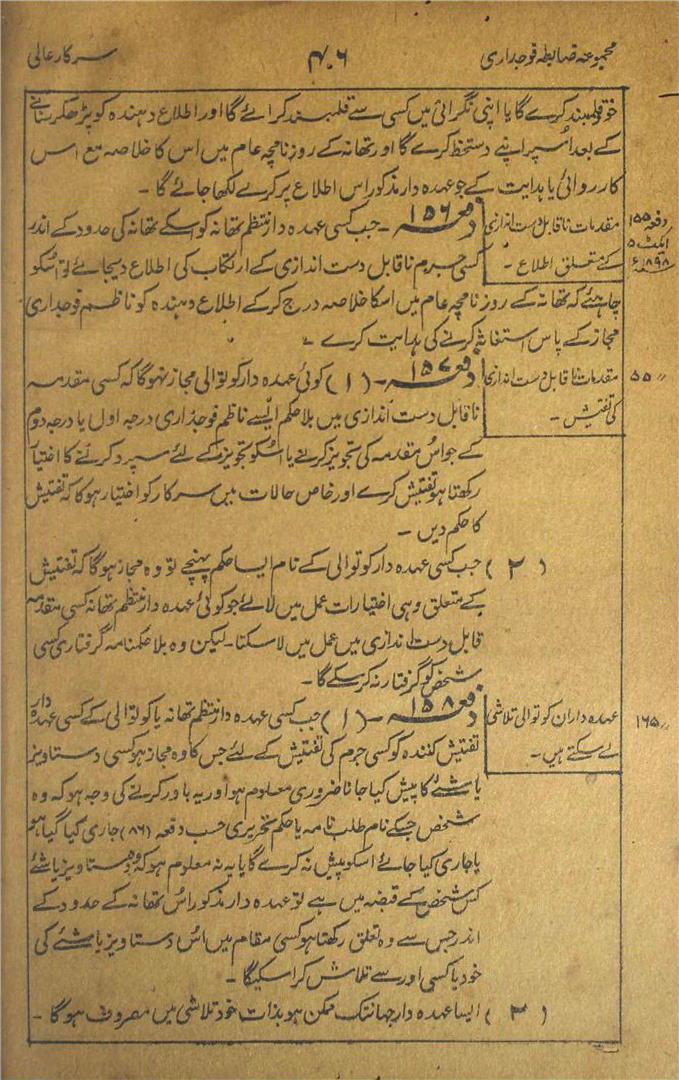 مجموعہ ضابطہ فوجداری
۴۰۶
سرکار عالی
خود قلمبند کرے گا یا اپنی نگرانی میں کسی سے قلمبند کرائے گا اور اطلاع دہندہ کو پڑھکر سنانے
کے بعد اُسپر اپنے دستخط کرے گا اور تھانہ کے روزنامچہ عام میں اس کا خلاصہ مع اس
کارروائی یا ہدایت کے جو عہدہ دار مذکور اس اطلاع پر کرے لکھا جائے گا ۔
دفعہ ۱۵۵
ایکٹ ۵
۱۸۹۸ء
مقدمات ناقابل دست اندازی
کے متعلق اطلاع ۔
دفعہ ۱۵۶ ۔ جب کسی عہدہ دار منتظم تھانہ کو اسکے تھانہ کی حدود کے اندر
کسی جرم ناقابل دست اندازی کے ارتکاب کی اطلاع دیجائے تو اسکو
چاہئے کہ تھانہ کے روزنامچہ عام میں اسکا خلاصہ درج کرکے اطلاع دہندہ کو ناظم فوجداری
مجاز کے پاس استغاثہ کرنے کی ہدایت کرے ۔
〃 ۵۵
مقدمات ناقابل دست اندازی
کی تفتیش ۔
دفعہ ۱۵۷ ۔ (۱) کوئی عہدہ دار کوتوالی مجاز نہوگا کہ کسی مقدمہ
ناقابل دست اندازی میں بلا حکم ایسے ناظم فوجداری درجہ اول یا درجہ دوم
کے جو اُس مقدمہ کی تجویز کرنے یا اسکو تجویز کے لئے سپرد کرنے کا اختیار
رکھتا ہو تفتیش کرے اور خاص حالات میں سرکار کو اختیار ہوگا کہ تفتیش
کا حکم دیں ۔
(۲) جب کسی عہدہ دار کوتوالی کے نام ایسا حکم پہنچے تو وہ مجاز ہوگا کہ تفتیش
کے متعلق وہی اختیارات عمل میں لائے جو کوئی عہدہ دار منتظم تھانہ کسی مقدمہ
قابل دست اندازی میں عمل میں لاسکتا ۔ لیکن وہ بلا حکمنامہ گرفتاری کسی
شخص کو گرفتار نہ کرسکے گا ۔
〃 ۱۶۵
عہدہ داران کوتوالی تلاشی
لے سکتے ہیں ۔
دفعہ ۱۵۸ ۔ (۱) جب کسی عہدہ دار منتظم تھانہ یا کوتوالی کے کسی عہدہ دار
تفتیش کنندہ کو کسی جرم کی تفتیش کے لئے جس کا وہ مجاز ہو کسی دستاویز
یا شئے کا پیش کیا جانا ضروری معلوم ہو اور یہ باور کرنے کی وجہ ہو کہ وہ
شخص جسکے نام طلب نامہ یا حکم تحریری حسب دفعہ (۸۶) جاری کیا گیا ہو
یا جاری کیا جائے اسکو پیش نہ کرے گا یا یہ نہ معلوم ہو کہ وہ دستاویز یا شئے
کس شخص کے قبضہ میں ہے تو عہدہ دار مذکور اس تھانہ کے حدود کے
اندر جس سے وہ تعلق رکھتا ہو کسی مقام میں اس دستاویز یا شئے کی
خود یا کسی اور سے تلاش کراسکیگا ۔
(۲) ایسا عہدہ دار جہانتک ممکن ہو بذات خود تلاشی میں مصروف ہوگا ۔